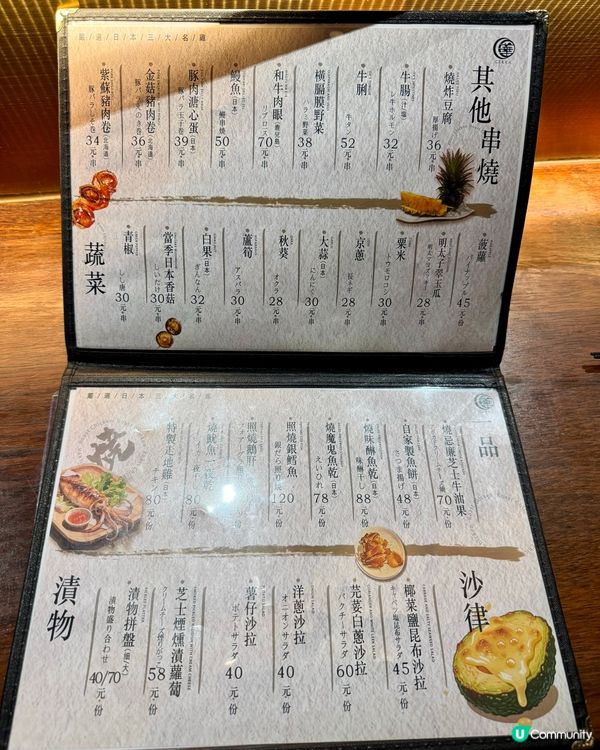 嚴/選/日/本/三/大/名/雞
其他串燒
燒炸豆腐
厚揚げ
36元・串
牛腸(汁/塩)
シ牛ホルモン
32元・串
牛脷
牛タン
52元・串
橫膈膜野菜
ハラミ野菜
38元・串
和牛肉眼(鹿兒島)
リブロース
70元・串
鰻魚(日本)
鰻串焼
50元・串
豚肉溏心蛋(日本)
豚バラ玉子巻
39元・串
金菇豬肉卷(北海道)
豚バラえのき巻
36元・串
紫蘇豬肉卷(北海道)
豚バラしそ巻
34元・串
菠蘿
パイナップル
45元/份
明太子翠玉瓜
明太子ズッキーニ
28元・串
粟米
トウモロコシ
30元・串
京蔥
長ネギ
28元・串
大蒜(日本)
にんにく
30元・串
秋葵
オクラ
28元・串
蘆筍
アスパラ
30元・串
白果(日本)
ぎんなん
32元・串
當季日本香菇
しいたけ
30元・串
青椒
しし唐
30元・串
蔬菜
嚴/選/日/本/三/大/名/雞
一品
燒忌廉芝士牛油果
70元/份
自家製魚餅(日本)
さつま揚げ
48元/份
燒味醂魚乾(日本)
味醂干し
88元/份
燒魔鬼魚乾(日本)
えいひれ
78元/份
照燒銀鱈魚
銀だら照り焼
120元/份
照燒鵝肝
元/份
燒魷魚一夜乾
元/份
特製走地雞(日本)
80元/份
沙律
椰菜鹽昆布沙拉
キャベツ塩昆布サラダ
45元/份
芫荽白蔥沙拉
パクチーサラダ
60元/份
洋蔥沙拉
オニオンサラダ
40元/份
薯仔沙拉
ポテトサラダ
40元/份
芝士煙燻漬蘿蔔
クリームチーズ燻りがっこ
58元/份
漬物拼盤(細/大)
漬物盛り合わせ
40/70元/份
漬物
U Community